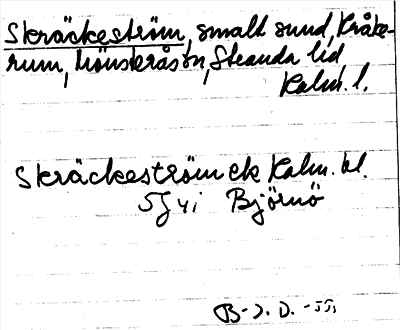 Skräckeström, smalt sund, Kråke-
rum, Mönsterås sn, Stranda hd
Kalm. l.
Skräckeström ek Kalm. bl.
5G4i Björnö
B-J. D. -55